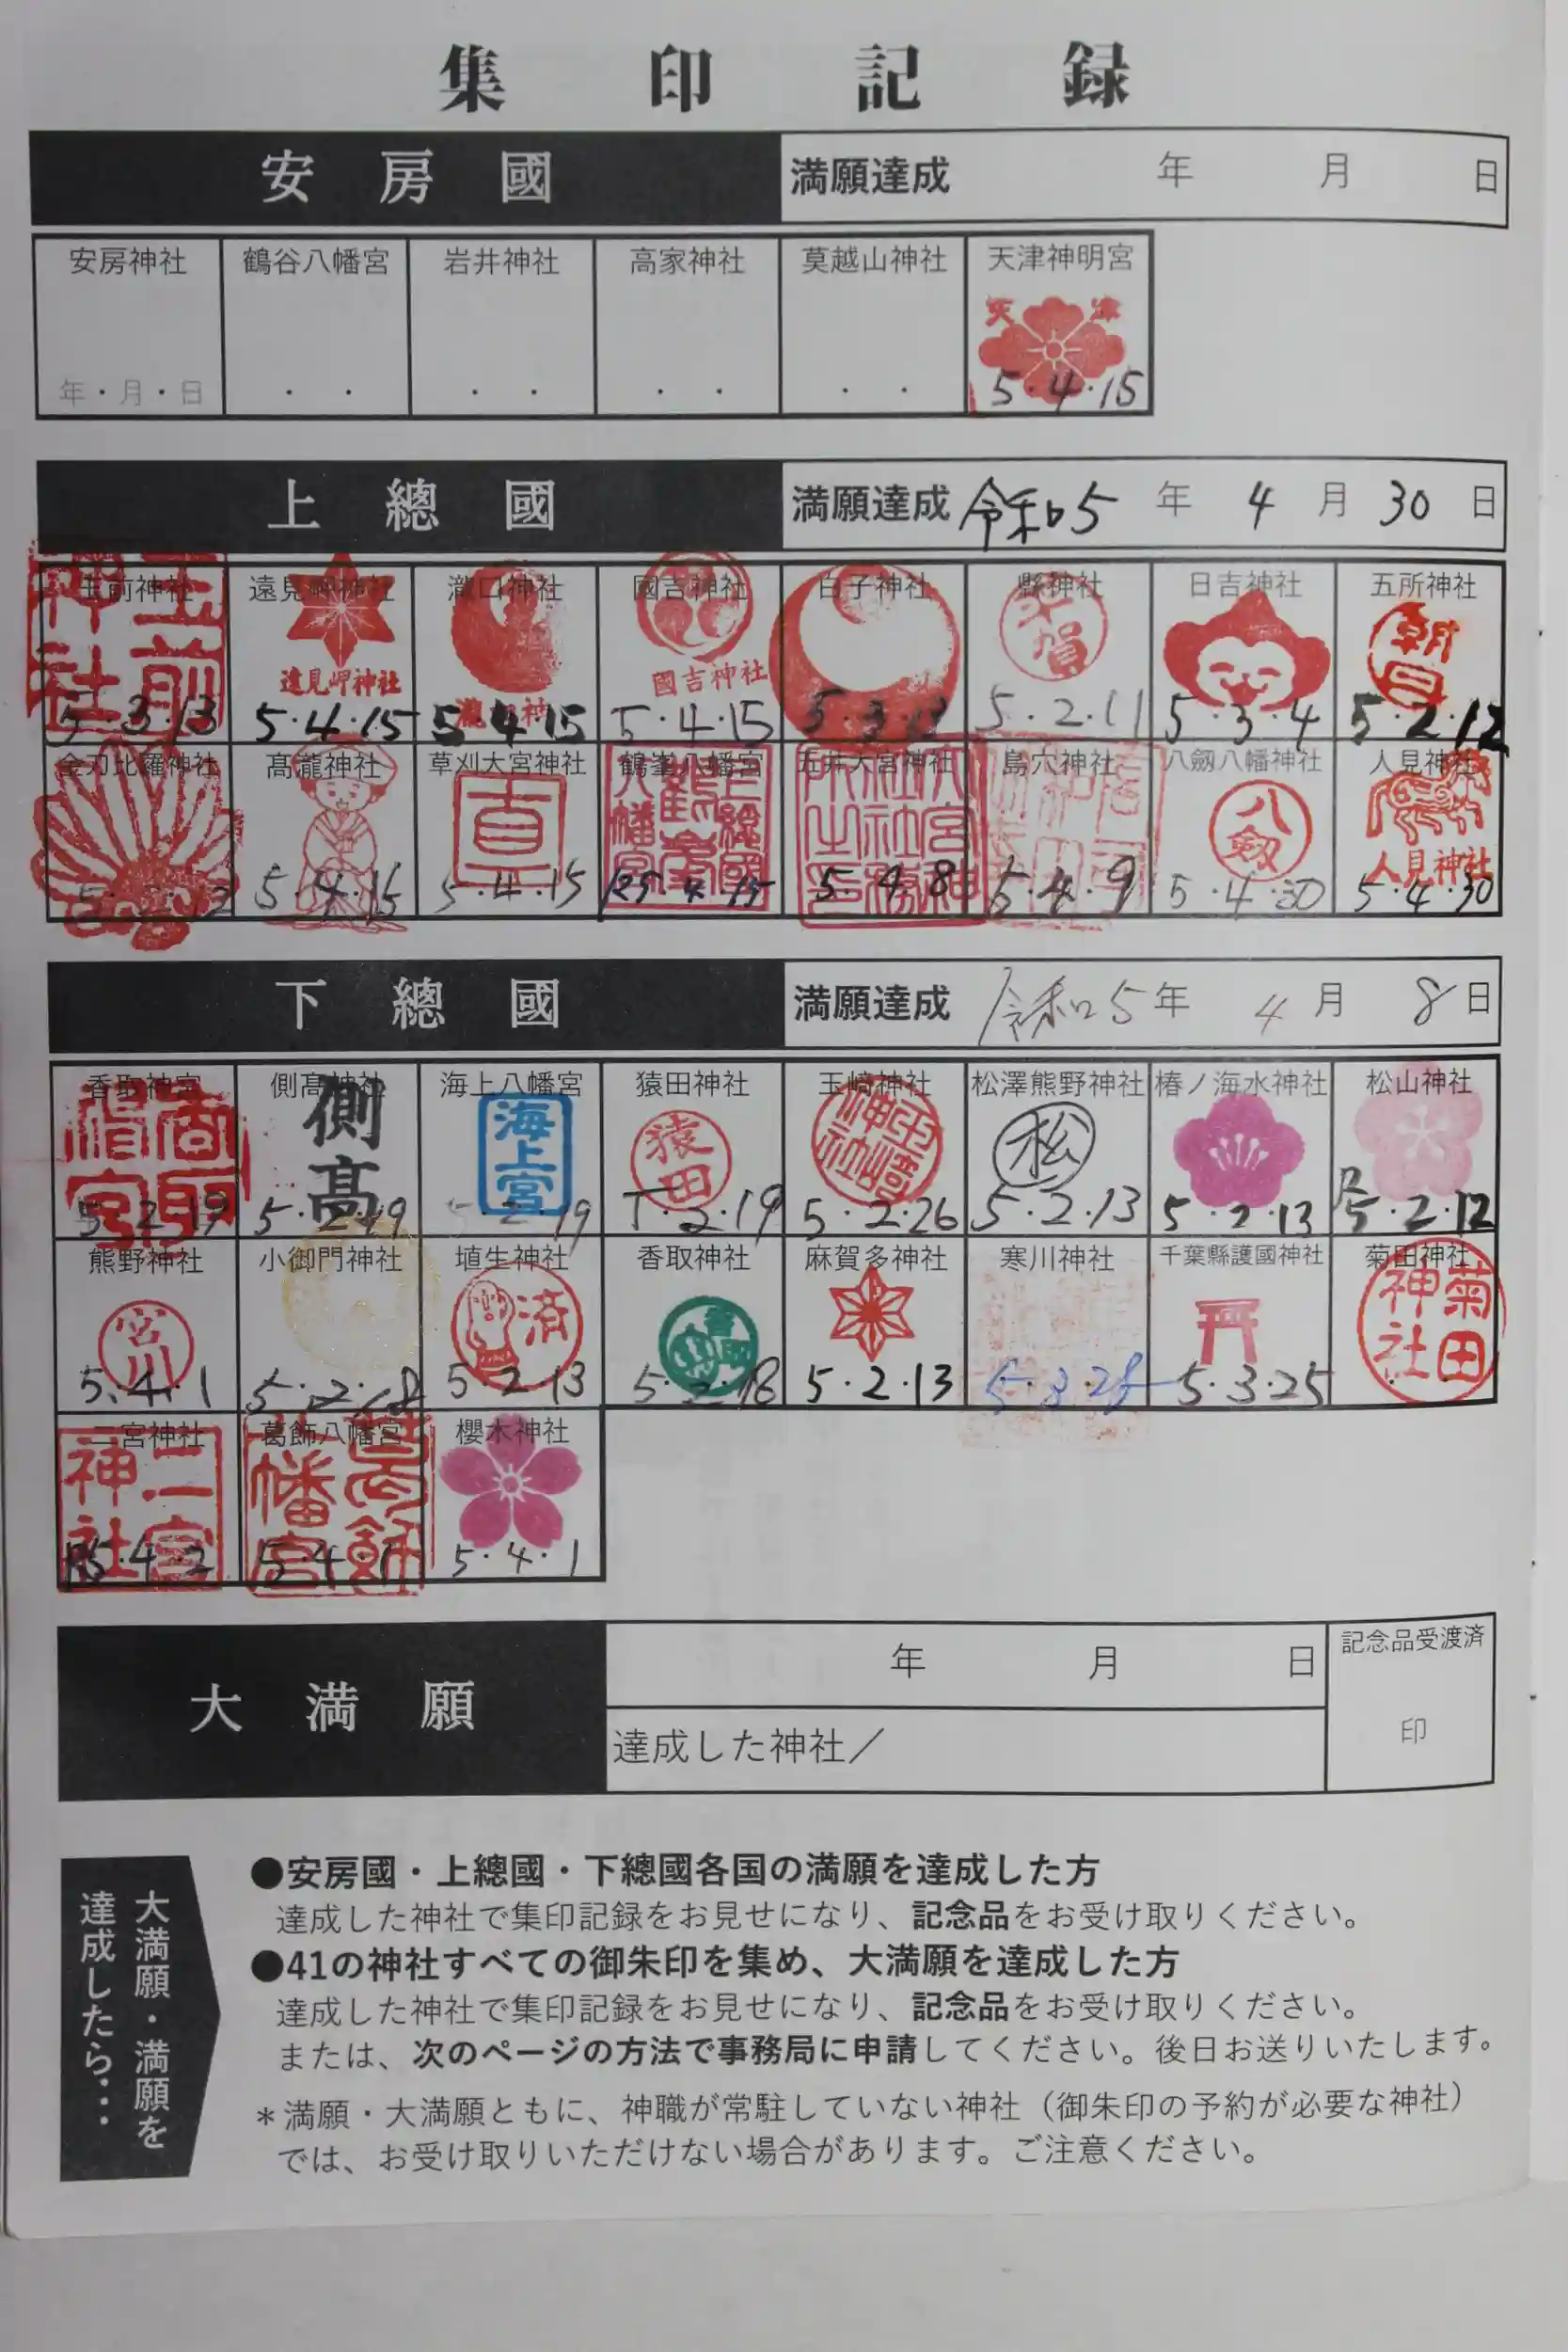 集印記録
安房國 満願達成 年 月 日
安房神社 鶴谷八幡宮 岩井神社 高家神社 莫越山神社 天津神明宮
天津
年・月・日 ・ ・ ・ ・ ・ ・ ・ ・ 5・4・15
上總國 満願達成 令和5年 4月 30日
玉前神社 遠見岬神社 瀧口神社 國吉神社 白子神社 縣神社 日吉神社 五所神社
玉前神社 遠見岬神社 國吉神社 朝日
5・3・13 5・4・15 5・4・15 5・4・15 5・3・13 5・2・11 5・3・4 5・2・12
金刀比羅神社 高瀧神社 草刈大宮神社 鶴峯八幡宮 五井大宮神社 島穴神社 八劔八幡神社 人見神社
上総國鶴峯八幡宮 八劔 人見神社
5・4・15 5・4・15 R5・4・15 5・4・8 5・4・9 5・4・30 5・4・30
下總國 満願達成 令和5年 4月 8日
香取神宮 側高神社 海上八幡宮 猿田神社 玉﨑神社 松澤熊野神社 椿ノ海水神社 松山神社
香取神宮 側高 海上宮 猿田 松
5・2・19 5・2・19 5・2・19 5・2・19 5・2・26 5・2・13 5・2・13 R5・2・12
熊野神社 小御門神社 埴生神社 香取神社 麻賀多神社 寒川神社 千葉縣護國神社 菊田神社
宮川 済 菊田神社
5・4・1 5・2・13 5・2・13 5・3・25
二宮神社 葛飾八幡宮 櫻木神社
二宮神社 葛飾八幡宮
R5・4・2 5・4・1 5・4・1
大満願 年 月 日 記念品受渡済
達成した神社／ 印
大満願・満願を
達成したら…
●安房國・上總國・下總國各国の満願を達成した方
達成した神社で集印記録をお見せになり、記念品をお受け取りください。
●41の神社すべての御朱印を集め、大満願を達成した方
達成した神社で集印記録をお見せになり、記念品をお受け取りください。
または、次のページの方法で事務局に申請してください。後日お送りいたします。
＊満願・大満願ともに、神職が常駐していない神社（御朱印の予約が必要な神社）
では、お受け取りいただけない場合があります。ご注意ください。